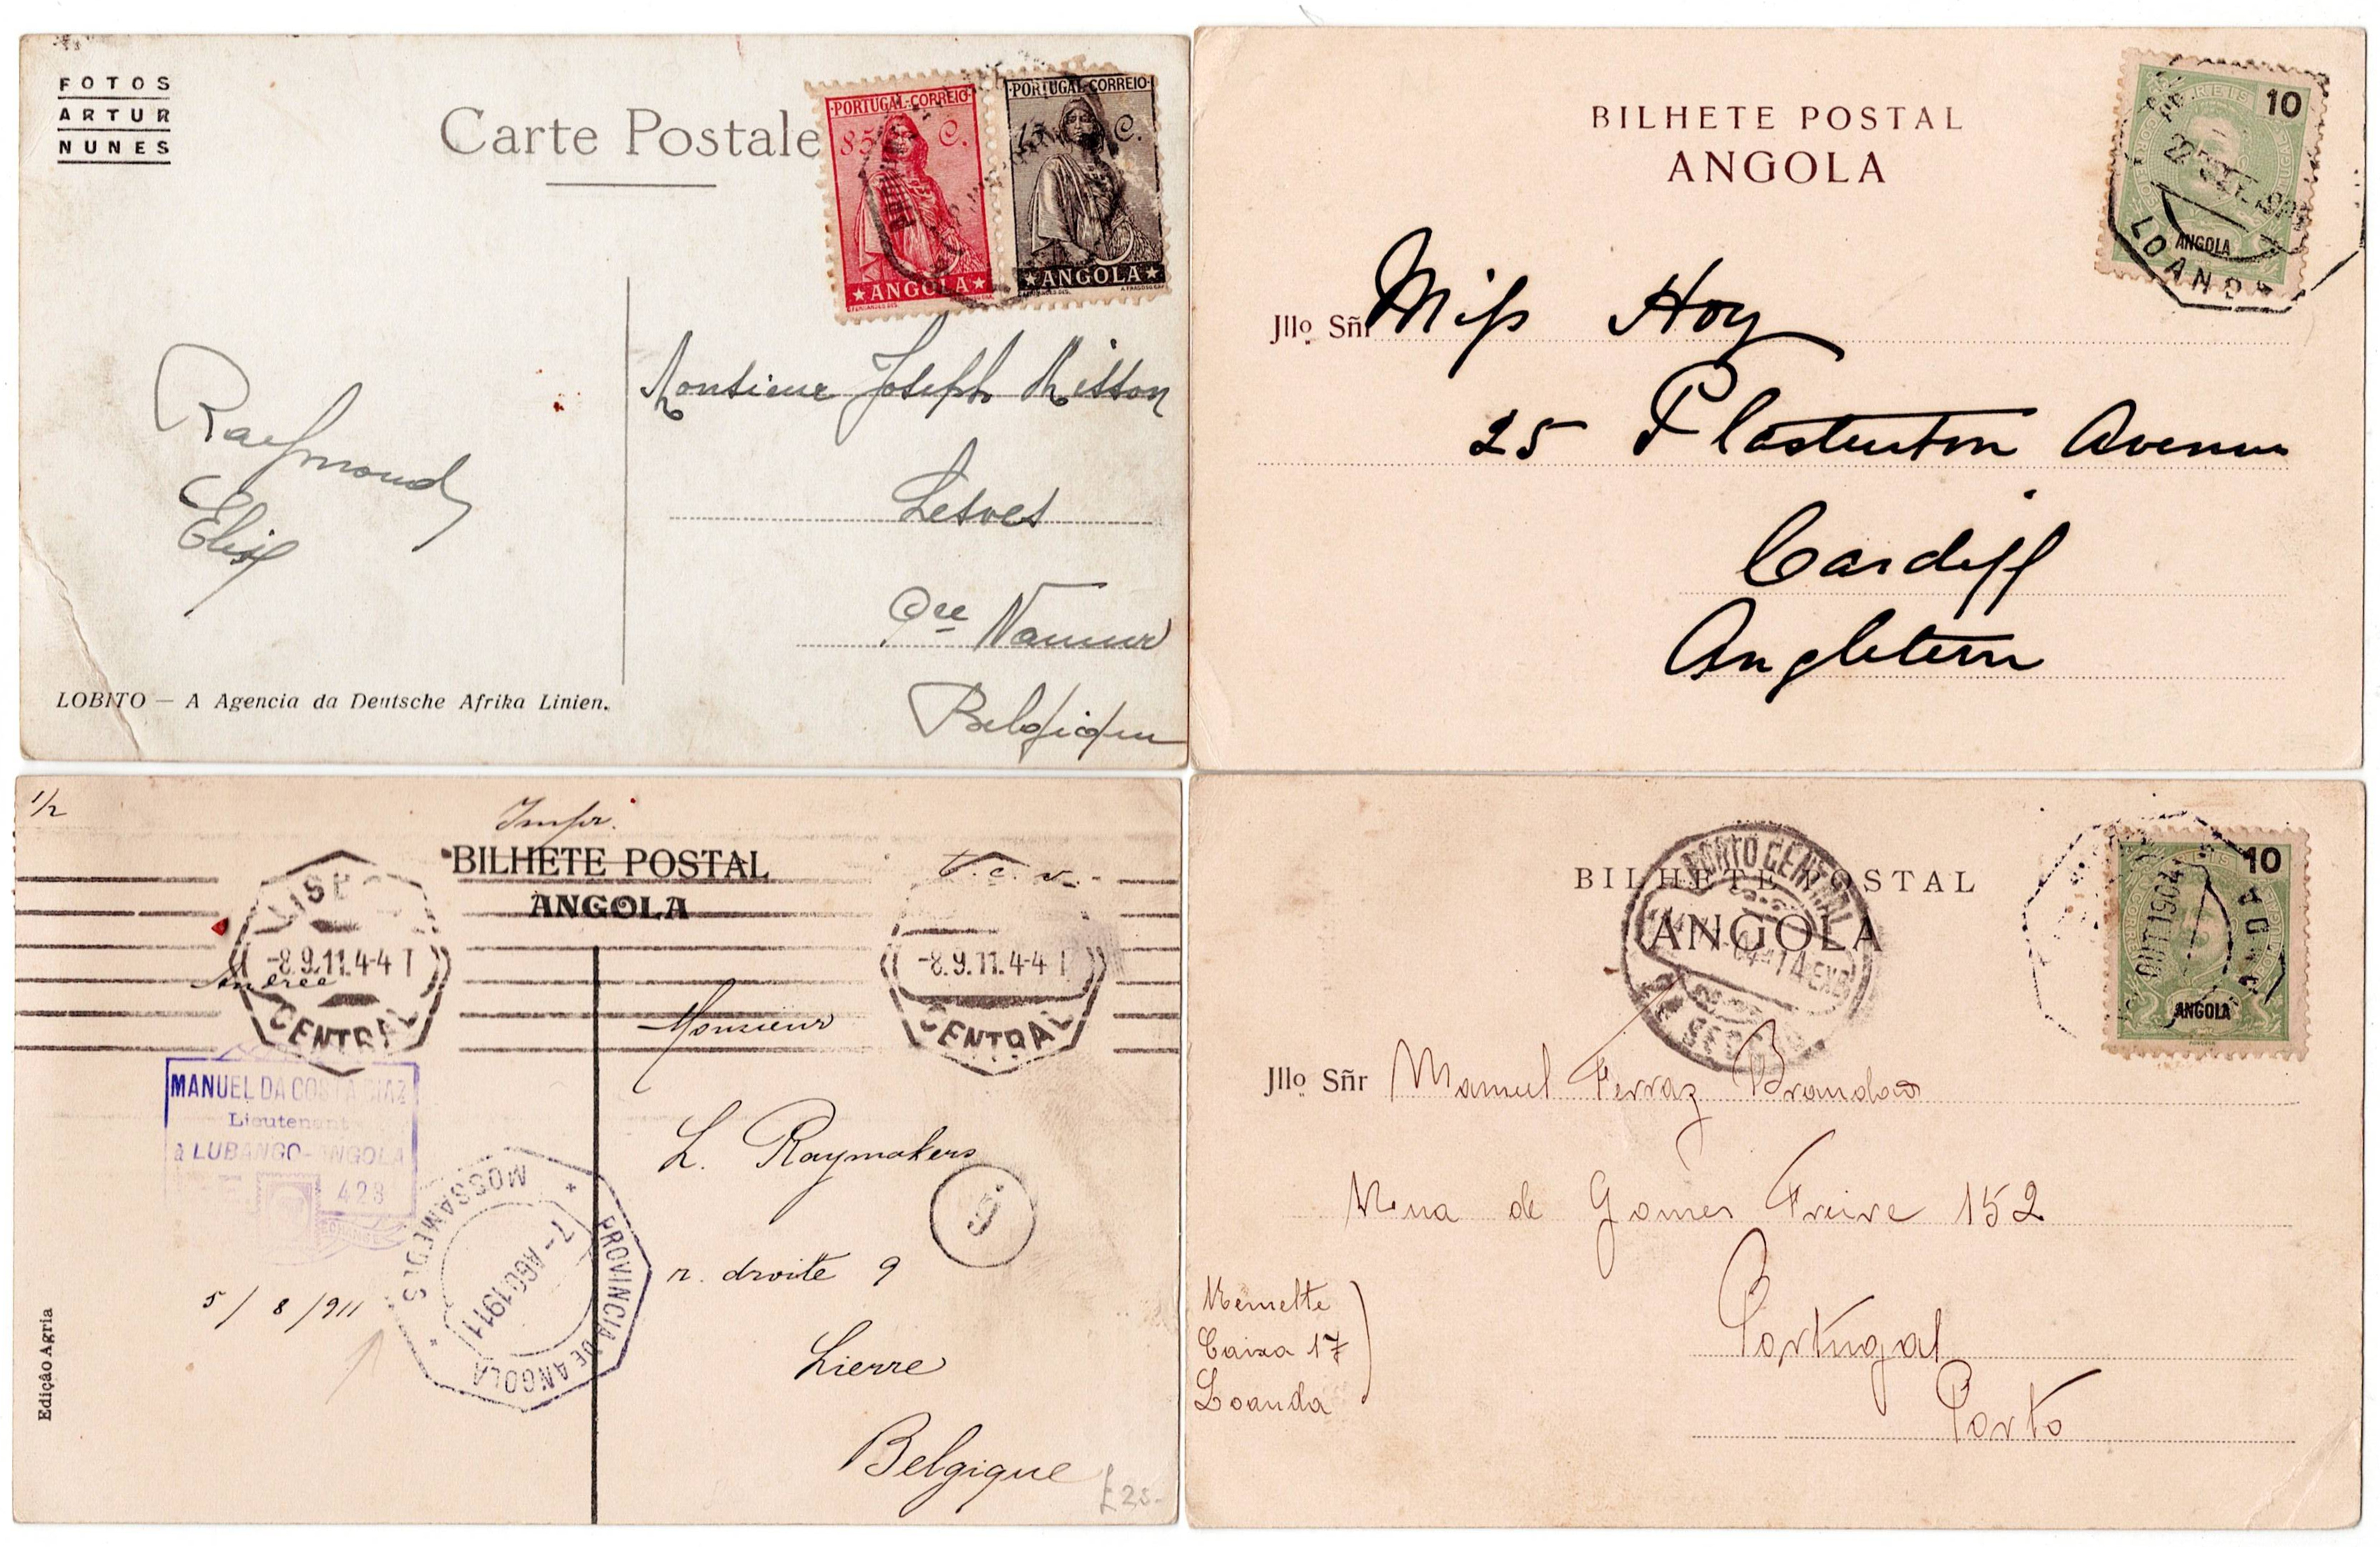 FOTOS
ARTUR
NUNES
Carte Postale
PORTUGAL-CORREIO
85 C.
ANGOLA
PORTUGAL-CORREIO
C.
ANGOLA
Raymond
Monsieur Joseph Misson
Lesves
Pce Namur
Belgique
LOBITO — A Agencia da Deutsche Afrika Linien.
BILHETE POSTAL
ANGOLA
REIS 10
ANGOLA
LOANDA
Jllo Sñr Miss Hoy
25 Plasturton Avenue
Cardiff
Angleterre
1/2
Impr.
BILHETE POSTAL
ANGOLA
t.c.v.
-8.9.11.4-4 T
CENTRAL
-8.9.11.4-4 T
CENTRAL
Andrée
Monsieur
MANUEL DA COSTA DIAZ
Lieutenant
à LUBANGO-ANGOLA
428
MOSSAMEDES
PROVINCIA DE ANGOLA
7-AGO1911
L. Raymakers
r. droite 9
5/8/911
Lierre
Belgique
£25-
Edição Agria
BILHETE POSTAL
ANGOLA
PORTO CENTRAL
2ª SEC
REIS 10
ANGOLA
OUT 1904
Jllo Sñr Manuel Ferraz Brandão
Rua de Gomes Freire 152
Portugal
Porto
Remette
Caixa 17
Loanda